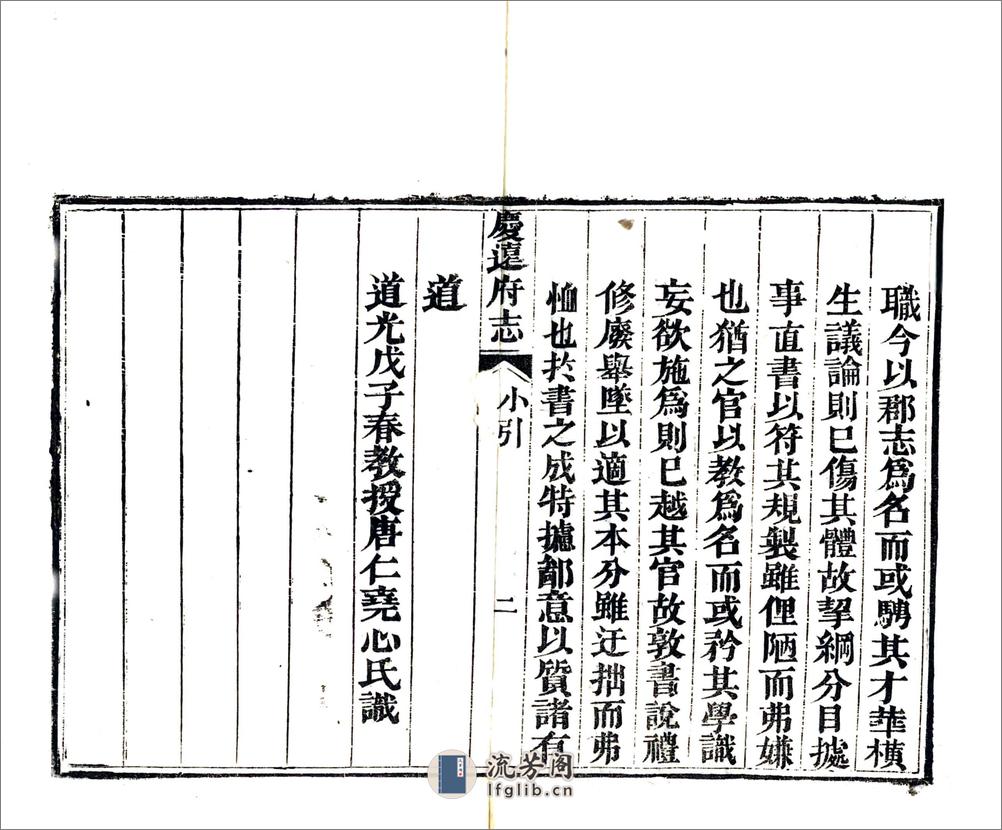 職今以郡志爲名而或騁其才華橫
生議論則已傷其體故挈綱分目據
事直書以符其規製雖俚陋而弗嫌
也猶之官以教爲名而或矜其學識
妄欲施爲則已越其官故敦書說禮
修廢舉墜以適其本分雖迂拙而弗
恤也於書之成特攄鄙意以質諸有
慶遠府志
小引
二
道
道光戊子春教授唐仁堯心氏識
流芳阁
lfglib.cn